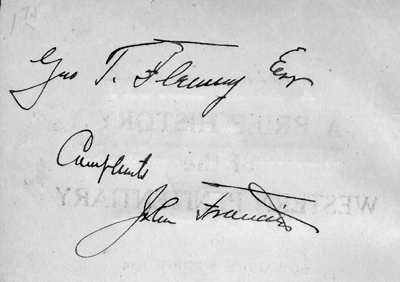 Geo T. Fleming Esqr
Compliments
John Francies
A BRIEF HISTORY
of the
WESTERN PENITENTIARY